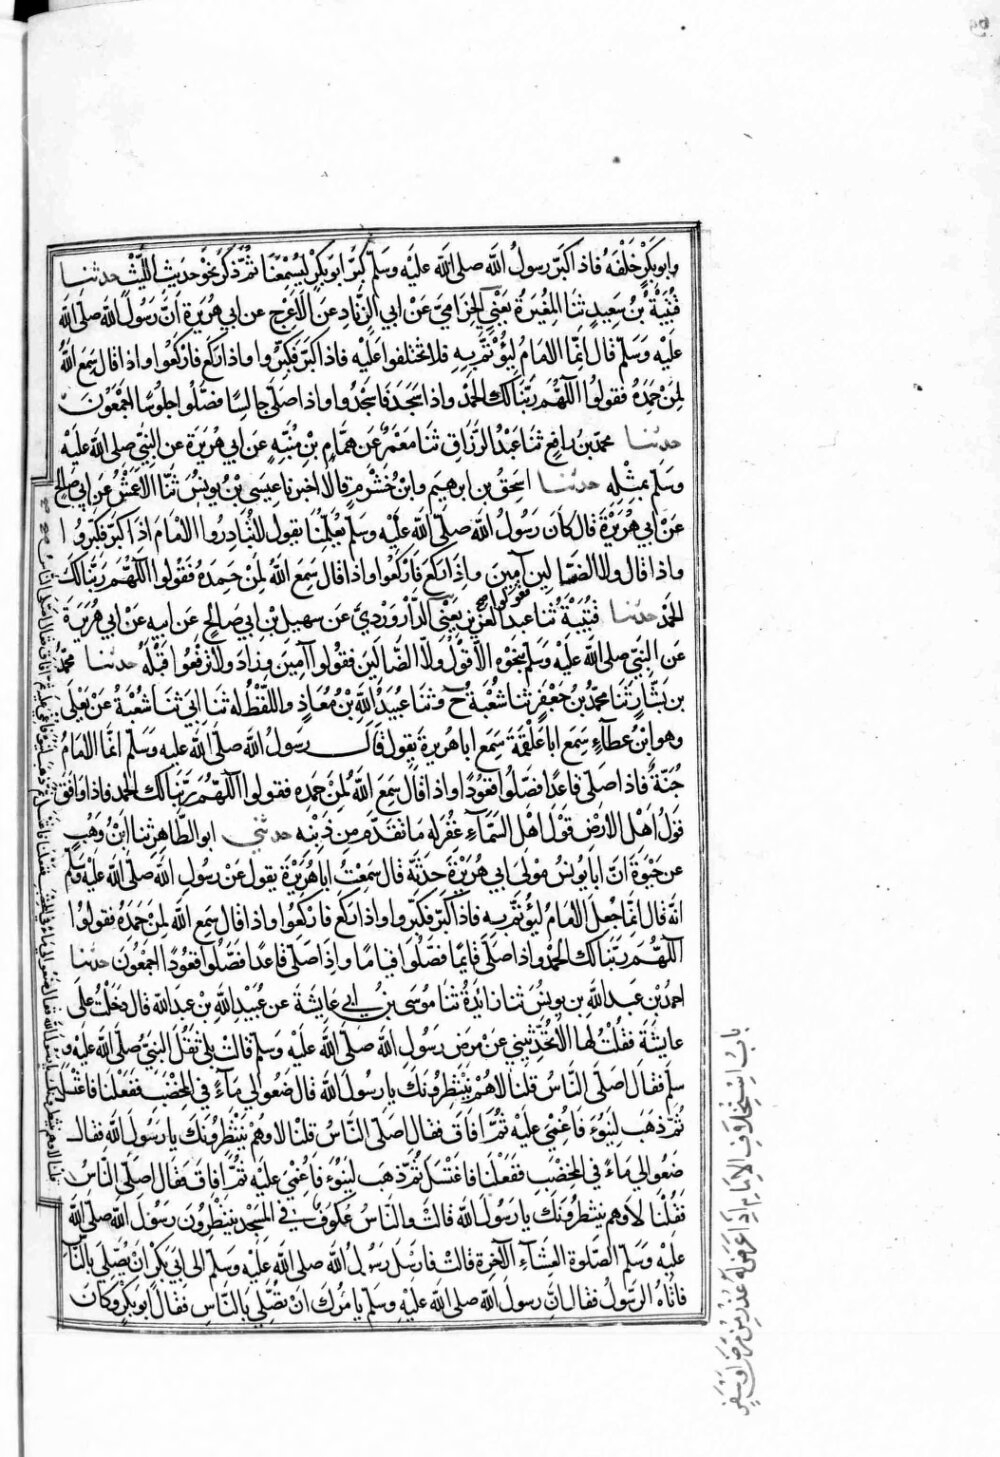 وابوبكر خلفه فاذا كبر رسول الله صلى الله عليه وسلم كبر ابوبكر ليسمعنا ثم ذكر نحو حديث الليث حدثنا
قتيبة بن سعيد ثنا المغيرة يعني الحزامي عن ابي الزناد عن الاعرج عن ابي هريرة ان رسول الله صلى الله
عليه وسلم قال انما الامام ليؤتم به فلا تختلفوا عليه فاذا كبر فكبروا واذا ركع فاركعوا واذا قال سمع الله
لمن حمده فقولوا اللهم ربنا لك الحمد واذا سجد فاسجدوا واذا صلى جالسا فصلوا جلوسا اجمعون
حدثنا محمد بن رافع ثنا عبد الرزاق ثنا معمر عن همام بن منبه عن ابي هريرة عن النبي صلى الله عليه
وسلم بمثله حدثنا اسحق بن ابرهيم وابن خشرم قالا اخبرنا عيسى بن يونس ثنا الاعمش عن ابي صالح
عن ابي هريرة قال كان رسول الله صلى الله عليه وسلم يعلمنا يقول لا تبادروا الامام اذا كبر فكبروا
واذا قال ولا الضالين آمين واذا ركع فاركعوا واذا قال سمع الله لمن حمده فقولوا اللهم ربنا لك
فقولوا صح
الحمد حدثنا قتيبة ثنا عبد العزيز يعني الدراوردي عن سهيل بن ابي صالح عن ابيه عن ابي هريرة
عن النبي صلى الله عليه وسلم بنحوه الا قول ولا الضالين فقولوا آمين وزاد ولا ترفعوا قبله حدثنا محمد
بن بشار ثنا محمد بن جعفر ثنا شعبة ح وثنا عبيد الله بن معاذ واللفظ له ثنا ابي ثنا شعبة عن يعلى
وهو ابن عطاء سمع ابا علقمة سمع ابا هريرة يقول قال رسول الله صلى الله عليه وسلم انما الامام
جنة فاذا صلى قاعدا فصلوا قعودا واذا قال سمع الله لمن حمده فقولوا اللهم ربنا لك الحمد فاذا وافق
قول اهل الارض قول اهل السماء غفر له ما تقدم من ذنبه حدثني ابو الطاهر ثنا ابن وهب
عن حيوة ان ابا يونس مولى ابي هريرة حدثه قال سمعت ابا هريرة يقول عن رسول الله صلى الله عليه وسلم
انه قال انما جعل الامام ليؤتم به فاذا كبر فكبروا واذا ركع فاركعوا واذا قال سمع الله لمن حمده فقولوا
اللهم ربنا لك الحمد واذا صلى قايما فصلوا قياما واذا صلى قاعدا فصلوا قعودا اجمعون حدثنا
احمد بن عبد الله بن يونس ثنا زايدة ثنا موسى بن ابي عايشة عن عبيد الله بن عبد الله قال دخلت على
عايشة فقلت لها الا تحدثيني عن مرض رسول الله صلى الله عليه وسلم قالت بلى ثقل النبي صلى الله عليه و
سلم فقال اصلى الناس قلنا لا هم ينتظرونك يا رسول الله قال ضعوا لي ماء في المخضب ففعلنا فاغتسل
ثم ذهب لينوء فاغمي عليه ثم افاق فقال اصلى الناس قلنا لا وهم ينتظرونك يا رسول الله فقال
ضعوا لي ماء في المخضب ففعلنا فاغتسل ثم ذهب لينوء فاغمي عليه ثم افاق فقال اصلى الناس
فقلنا لا وهم ينتظرونك يا رسول الله قالت والناس عكوف في المسجد ينتظرون رسول الله صلى الله
عليه وسلم الصلوة العشاء الآخرة قالت فارسل رسول الله صلى الله عليه وسلم الى ابي بكر ان يصلي بالناس
فاتاه الرسول فقال ان رسول الله صلى الله عليه وسلم يامرك ان تصلي بالناس فقال ابوبكر وكان
باب استخلاف الامام اذا عرض له عذر من مرض او سفر